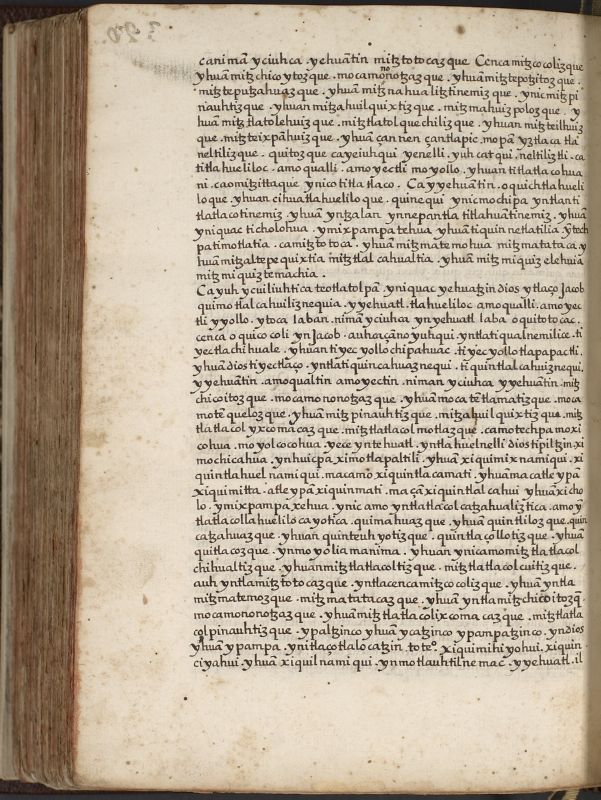 canimã yciuhca . yehuãtin mitztotocazque Cencamitzcocolizque
yhuã mitzchicoytozque . mocamononotzazque . yhuã mitztepotzitozque .
mitzteputzahuazque . yhuã mitznahualitztinemizque . ynicmitzpi
nauhtizque . yhuan mitzahuilquixtizque . mitzmahuizpolozque . y
huã mitztlatolehuizque . mitztlatolquechilizque . yhuan mitzteilhuiz
que . mitzteixpãhuizque . yhuã çan nen çantlapic . mopã yztlacatlã
neltilizque . quitozque cayeiuhqui yenelli . yuhcatqui . neltiliztli . ca
titlahueliloc . amoqualli . amoyectli moyollo . yhuan titlatlacohua
ni . caomitzittaque ynicotitlatlaco . Ca yyehuãtin . oquichtlahueli
loque . yhuan cihuatlahueliloque . quinequi ynicmochipa yntlanti
tlatlacotinemiz . yhuã yntzalan ynnepantla titlahuãtinemiz . yhuã
yniquac ticholohua . ymixpampa tehua . yhuã tiquinnetlatilia ỹtech
patimotlatia . camitztotoca . yhuã mitzmatemohua mitzmatataca y
huã mitzaltepequixtia mitztlalcahualtia . yhuã mitzmiquizelehuia
mitzmiquiztemachia .
Ca yuh ycuiliuhtica teotlatolpã . yniquac yehuatzin dios ytlaço Jacob
quimotlalcahuiliznequia . yyehuatl . tlahueliloc amoqualli . amoyec
tli yyollo . ytoca laban . nimã yciuhca ynyehuatl labã oquitotocac .
cenca oquicocoli yn Jacob . auhcaçãno yuhqui . yntlatiqualnemilice . ti
yectlachihuale . yhuan tiyecyollochipahuac . tiyecyollotlapapactli .
yhuã dios tiyectlaço . yntlatiquincahuaznequi . tiquintlalcahuiznequi,
yyehuãtin . amoqualtin amoyectin . niman yciuhca yyehuãtin . mitz
chicoitozque . mocamononotzazque . yhuã mocatetlamatizque . moca
motequelozque . yhuã mitzpinauhtizque . mitzahuilquixtizque . mitz
tlatlacolyxcomacazque . mitztlatlacolmotlazque . camotechpamoxi
cohua . moyolcocohua . yece yntehuatl . yntlahuelnelli dios tipiltzin . xi
mochicahua . ynhuicpa ximotlapaltili . yhuã xiquimixnamiqui . xi
quintlahuelnamiqui . macamo xiquintlacamati . yhuã macatle ypã
xiquimitta . atle ypã xiquinmati . maçã xiquintlalcahui yhuã xicho
lo . ymixpampa xehua . ynicamo yntlatlacolcatzahualiztica . amoỹ
tlatlacollahuelilocayotica . quimahuazque . yhuã quintlilozque, quin
catzahuazque . yhuan quinteuhyotizque . quintlaçollotizque . yhuã
quitlacozque . ynmoyolia manima . yhuan ynicamomitztlatlacol
chihualtizque . yhuanmitztlatlacoltizque . mitztlatlacolcuitizque .
auh yntlamitztotocazque . yntlacencamitzcocolizque . yhuã yntla
mitzmatemozque . mitzmatatacazque . yhuã yntlamitzchicoitozq̃
mocamononotzazque . yhuã mitztlatlacolixcomacazque . mitztlatla
colpinauhtizque . ypaltzinco yhuã ycatzinco ypampatzinco . yn dios
yhuã ypampa . ynitlaçotlalocatzin . toteᵒ . xiquimihiyohui . xiquin
ciyahui yhuã xiquilnamiqui . ynmotlauhtilnemac . yyehuatl . il